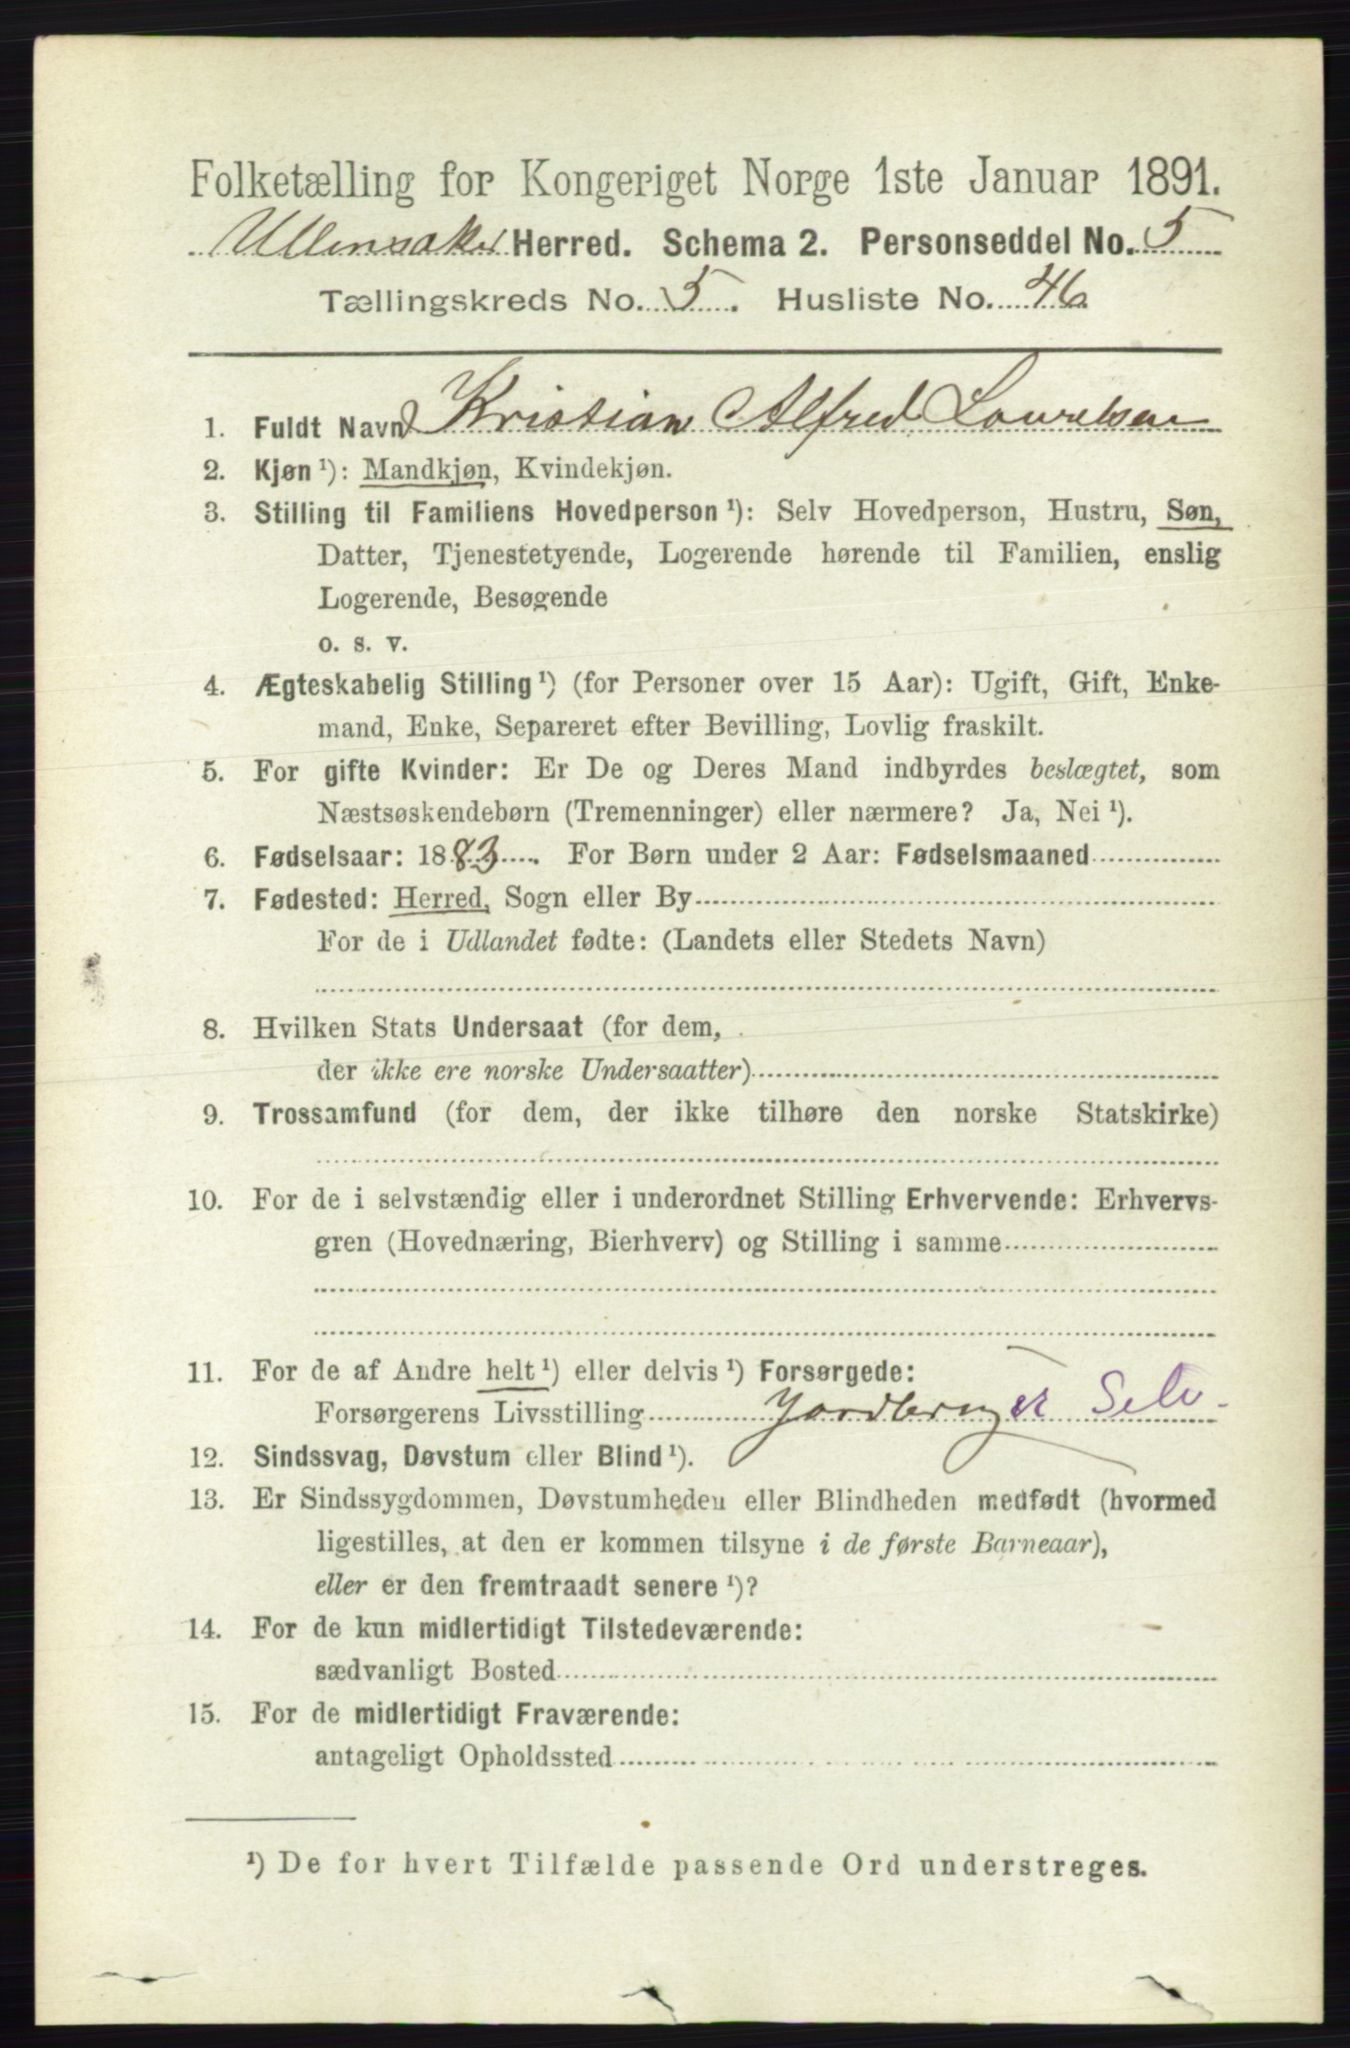 Folketælling for Kongeriget Norge 1ste Januar 1891.
Ullensaker Herred. Schema 2. Personseddel No. 5
Tællingskreds No. 5. Husliste No. 46
1. Fuldt Navn Kristian Alfred
2. Kjøn ¹): Mandkjøn, Kvindekjøn.
3. Stilling til Familiens Hovedperson ¹): Selv Hovedperson, Hustru, Søn,
Datter, Tjenestetyende, Logerende hørende til Familien, enslig
Logerende, Besøgende
o. s. v.
4. Ægteskabelig Stilling ¹) (for Personer over 15 Aar): Ugift, Gift, Enke-
mand, Enke, Separeret efter Bevilling, Lovlig fraskilt.
5. For gifte Kvinder: Er De og Deres Mand indbyrdes beslægtet, som
Næstsøskendebørn (Tremenninger) eller nærmere? Ja, Nei ¹).
6. Fødselsaar: 1883. For Børn under 2 Aar: Fødselsmaaned
7. Fødested: Herred, Sogn eller By
For de i Udlandet fødte: (Landets eller Stedets Navn)
8. Hvilken Stats Undersaat (for dem,
der ikke ere norske Undersaatter)
9. Trossamfund (for dem, der ikke tilhøre den norske Statskirke)
10. For de i selvstændig eller i underordnet Stilling Erhvervende: Erhvervs-
gren (Hovednæring, Bierhverv) og Stilling i samme
11. For de af Andre helt ¹) eller delvis ¹) Forsørgede:
Forsørgerens Livsstilling Selv.
12. Sindssvag, Døvstum eller Blind ¹).
13. Er Sindssygdommen, Døvstumheden eller Blindheden medfødt (hvormed
ligestilles, at den er kommen tilsyne i de første Barneaar),
eller er den fremtraadt senere ¹)?
14. For de kun midlertidigt Tilstedeværende:
sædvanligt Bosted
15. For de midlertidigt Fraværende:
antageligt Opholdssted
¹) De for hvert Tilfælde passende Ord understreges.